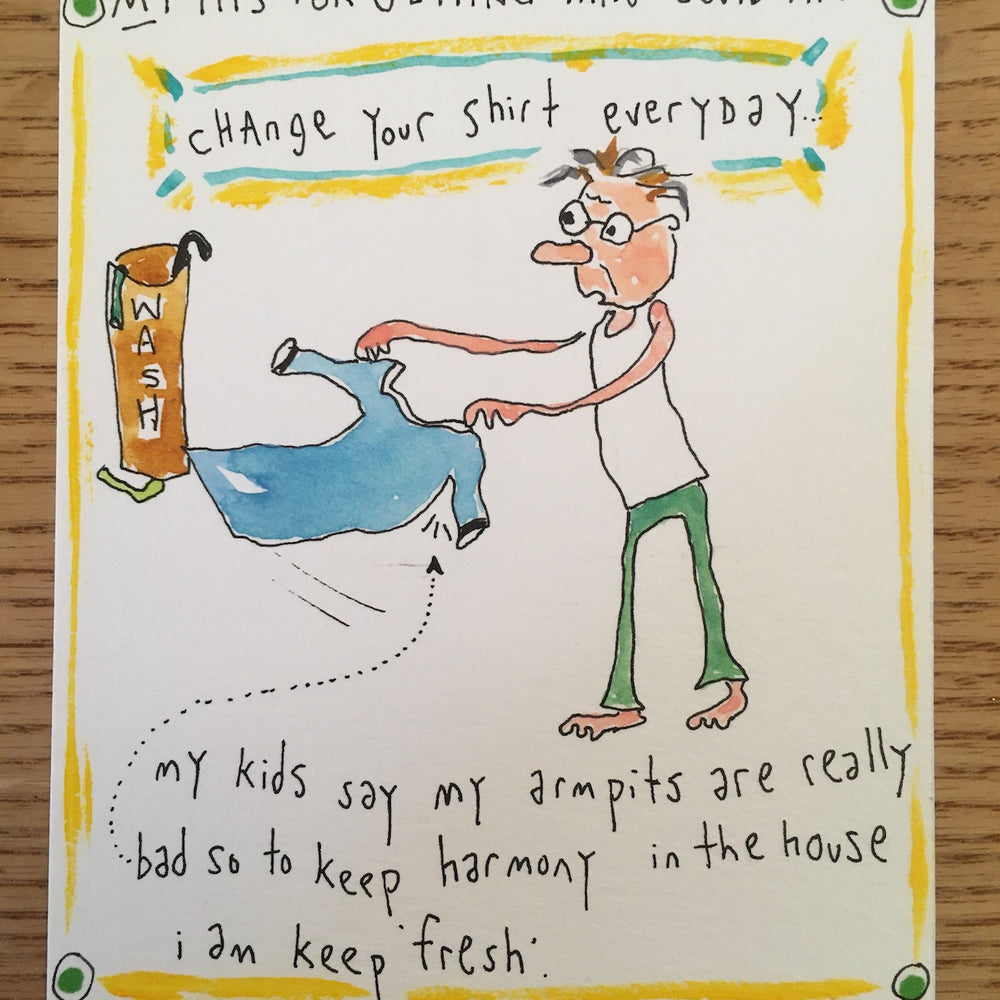 cHAnge your shirt everyDAY...
WASH
my kids say my armpits are really
bad so to keep harmony in the house
i am keep 'fresh'.